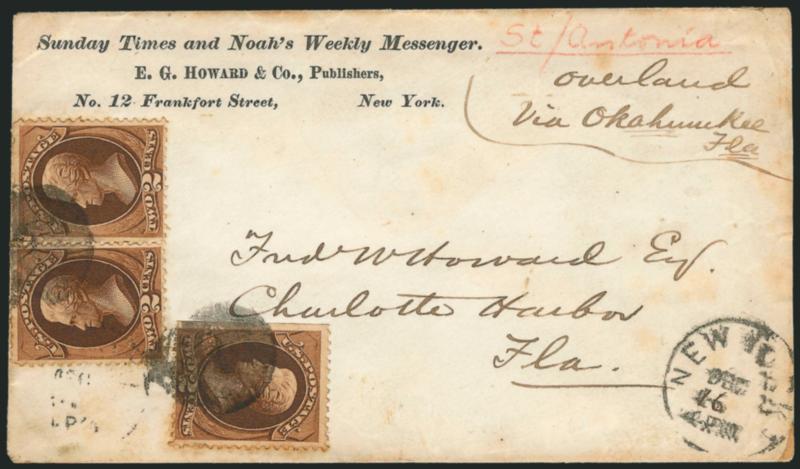 Sunday Times and Noah's Weekly Messenger.
E. G. Howard & Co., Publishers,
No. 12 Frankfort Street, New York.
St/Antonia
overland
Via Okahumkee
Fla
U.S. POSTAGE
TWO CENTS
U.S. POSTAGE
TWO CENTS
Fred W Howard Eq.
Charlotte Harbor
Fla.
U.S. POSTAGE
TWO CENTS
NEW YORK
DEC
16
4 PM